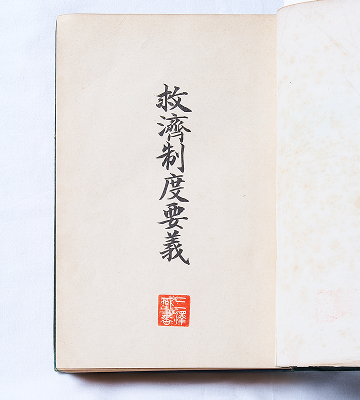 救濟制度要義